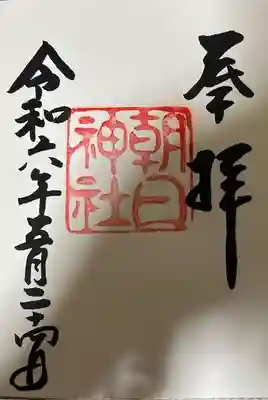 奉拝
朝日
神社
令和六年五月二十四日